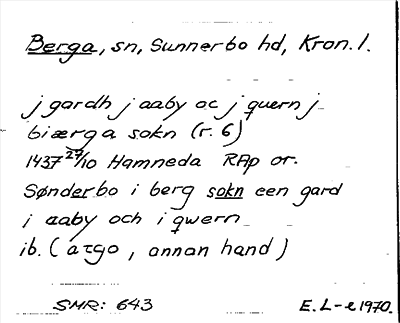 Berga, sn, Sunnerbo hd, Kron. l.
j gardh j aaby oc j quern j
biærga sokn (r. 6)
1437 27/10 Hamneda RAp or.
Sønderbo i berg sokn een gard
i aaby och i qwern
ib. (atgo, annan hand)
SMR: 643
E. L-e 1970.